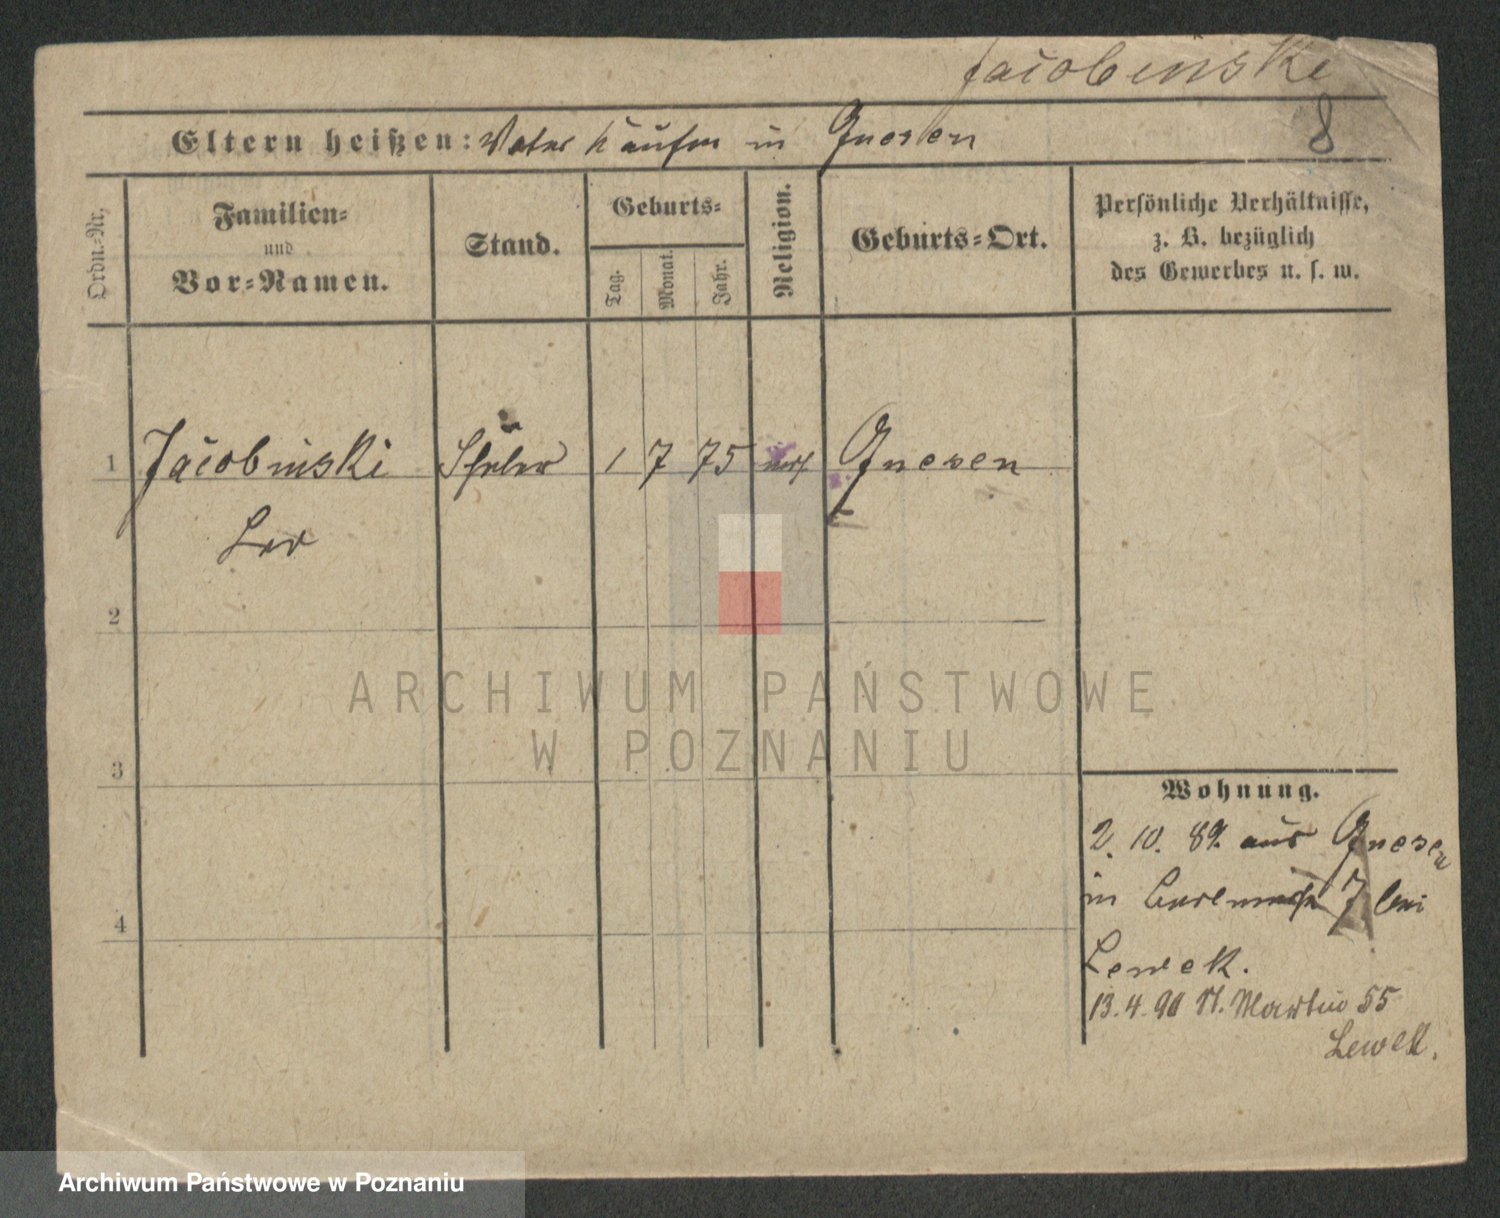 Jacobinski
8
Eltern heißen: Vater Kaufm in Gnesen
Ordn.-Nr.
Familien-
und
Vor-Namen.
Stand.
Geburts-
Tag.
Monat.
Jahr.
Religion.
Geburts-Ort.
Persönliche Verhältnisse,
z. B. bezüglich
des Gewerbes u. s. w.
1 Jacobinski 1 7 75 mos Gnesen
Leo
2
3
4
Wohnung.
2. 10. 89. aus Gnesen
in 7 bei
Lewek.
13. 4. 90 St. Martin 55
Lewek.
ARCHIWUM PAŃSTWOWE
W POZNANIU
Archiwum Państwowe w Poznaniu